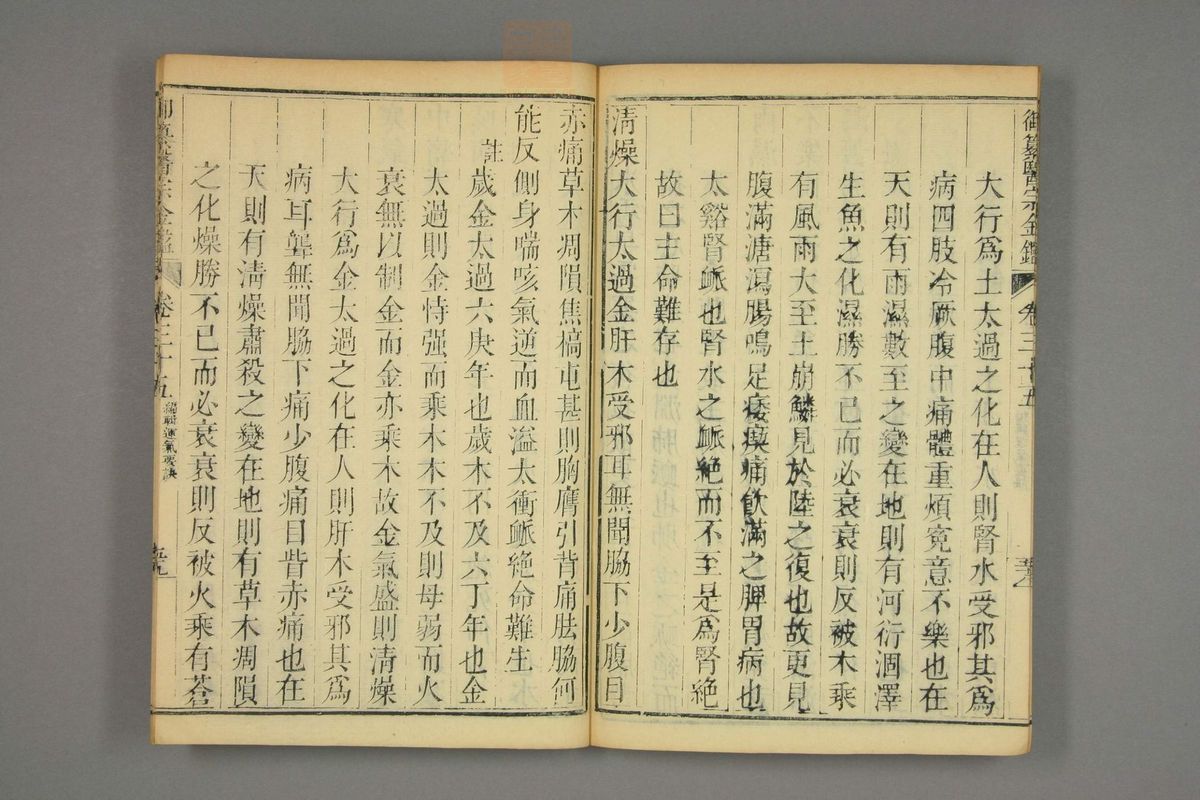 御纂醫宗金鑑 卷三十五
大行爲土太過之化在人則腎水受邪其爲
病四肢冷厥腹中痛體重煩寃意不樂也在
天則有雨濕數至之變在地則有河衍涸澤
生魚之化濕勝不已而必衰衰則反被木乘
有風雨大至土崩鱗見於陸之復也故更見
腹滿溏瀉腸鳴足痿瘈痛飲滿之脾胃病也
太谿腎脈也腎水之脈絶而不至是爲腎絶
故曰主命難存也
清燥大行太過金肝木受邪耳無聞脇下少腹目
赤痛草木凋隕焦槁屯甚則胸膺引背痛胠脇何
能反側身喘咳氣逆而血溢太衝脈絶命難生
註
歲金太過六庚年也歲木不及六丁年也金
太過則金恃强而乘木木不及則母弱而火
衰無以制金而金亦乘木故金氣盛則清燥
大行爲金太過之化在人則肝木受邪其爲
病耳聾無聞脇下痛少腹痛目眥赤痛也在
天則有清燥肅殺之變在地則有草木凋隕
之化燥勝不已而必衰衰則反被火乘有蒼
卷三十五 編輯運氣要訣